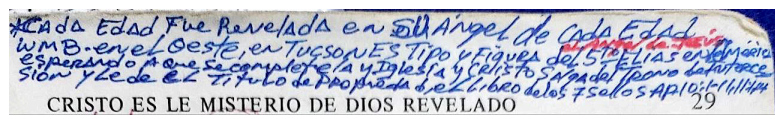 *CADA EDAD Fue Revelada en SU Angel de Cada Edad
el Angel de Jesús
WMB. en el Oeste, en Tucson ES Tipo y Figura del 5 Elias en America
esperando A que se complete la y Iglesia y Cristo Salga del Trono de Interce
sión y Le de el Titulo de Propiedad, el Libro de los 7 Sellos AP10:1-11,
CRISTO ES LE MISTERIO DE DIOS REVELADO 29